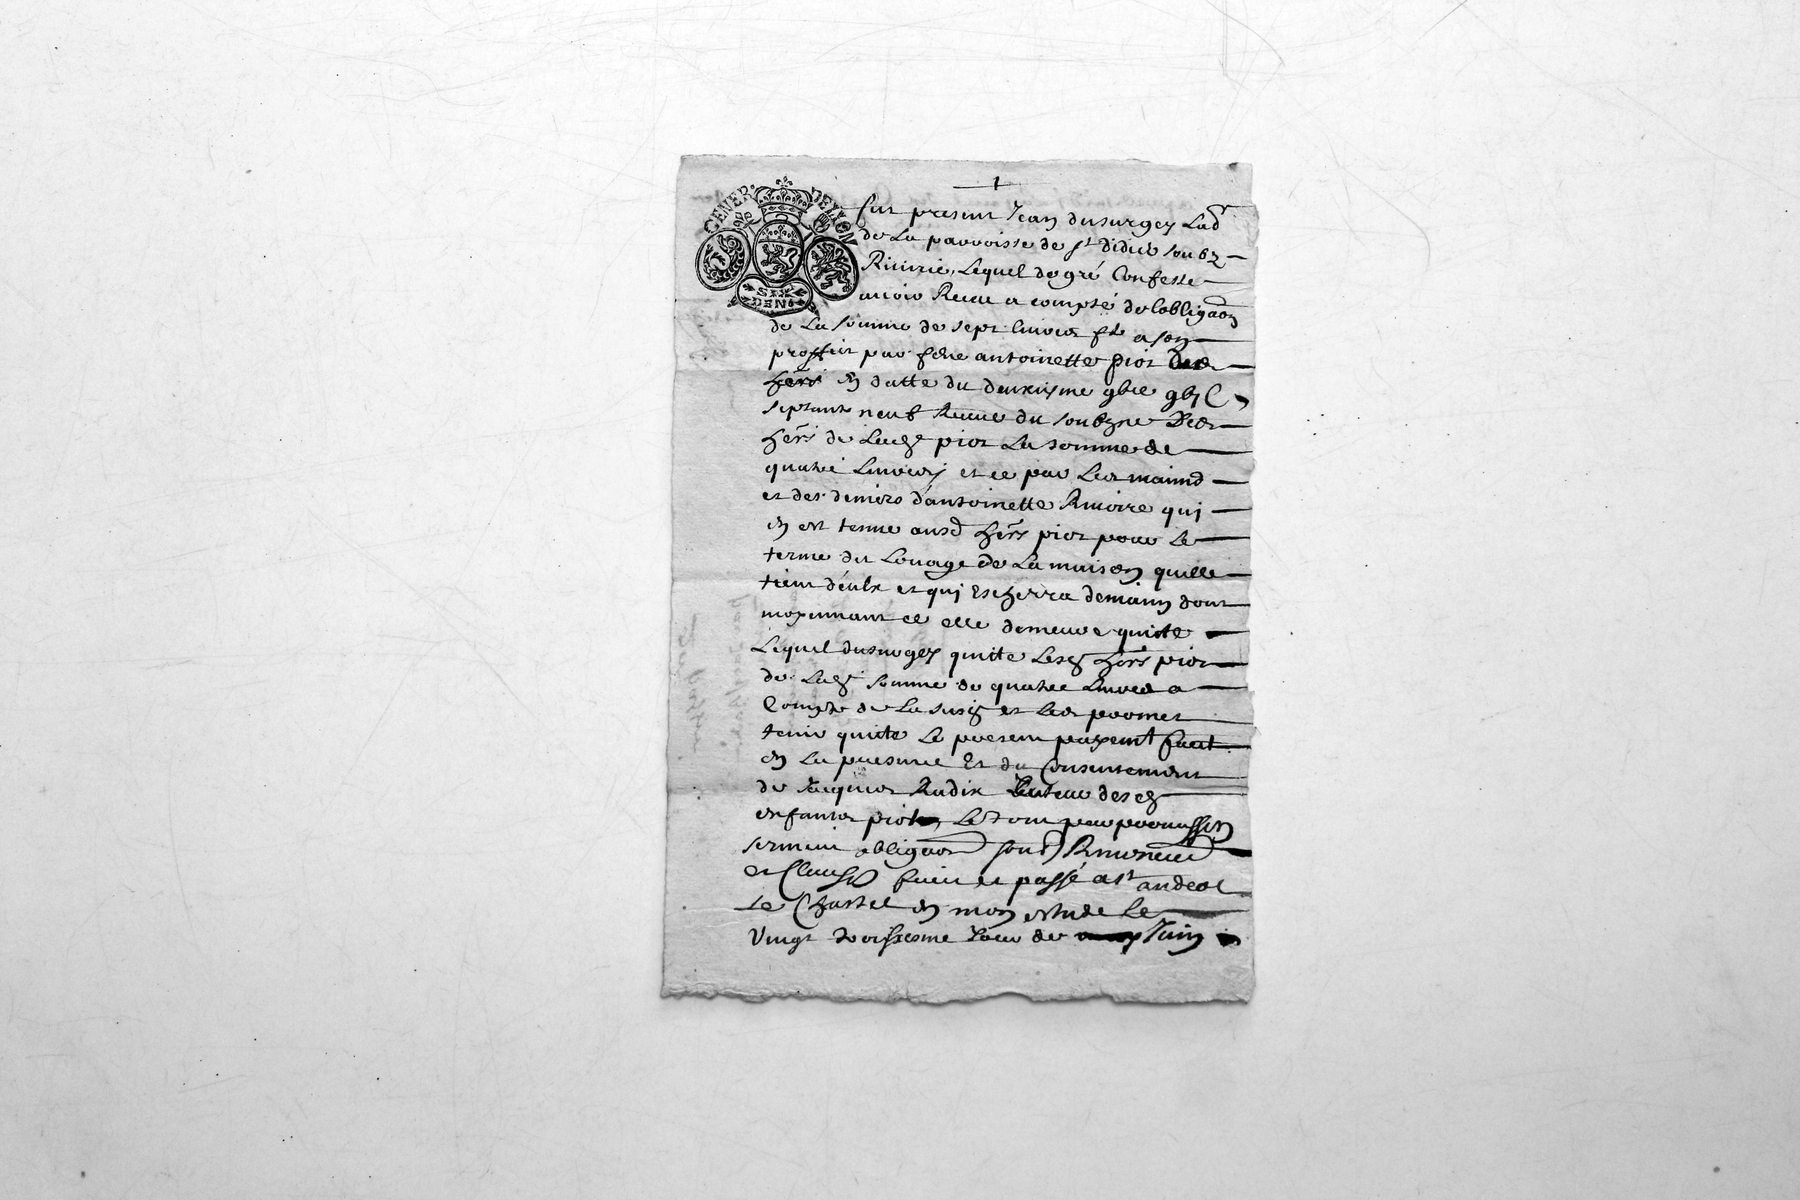 GENER. DE LYON
SIX
DEN
1
fut present Jean dusurgey Lad
de La parroisse de st didier soubz
Rivirie, Lequel de gré Confesse
avoir Receu a compte de lobligaon
de La somme de sept livres a son
proffit par feue antoinette piot
hers en datte du deuxiesme 9bre
septante neuf Receue du soubzne Des
hers de Lad piot La somme de
quatre Livres et ce par Les mains
et des deniers d'antoinette Rivoire qui
en est tenue ausd hers piot pour le
terme du Louage de La maison quelle
tient d'eulx et qui Escherra demain dont
moyennant ce elle demeure quitte
Lequel dusurgey quitte Lesd hers piot
de Lad somme de quatre Livres a
Compte de La susd et Les promet
tenir quitte Le present payemt faict
en La presence Et du Consentement
de Jacques Radix tuteur desd
enfants piot, Le tout par
serment obligaon
et Clauses faict et passé a st andeol
Le Chastel en mon estude le
Vingt troisiesme Jour de Juin